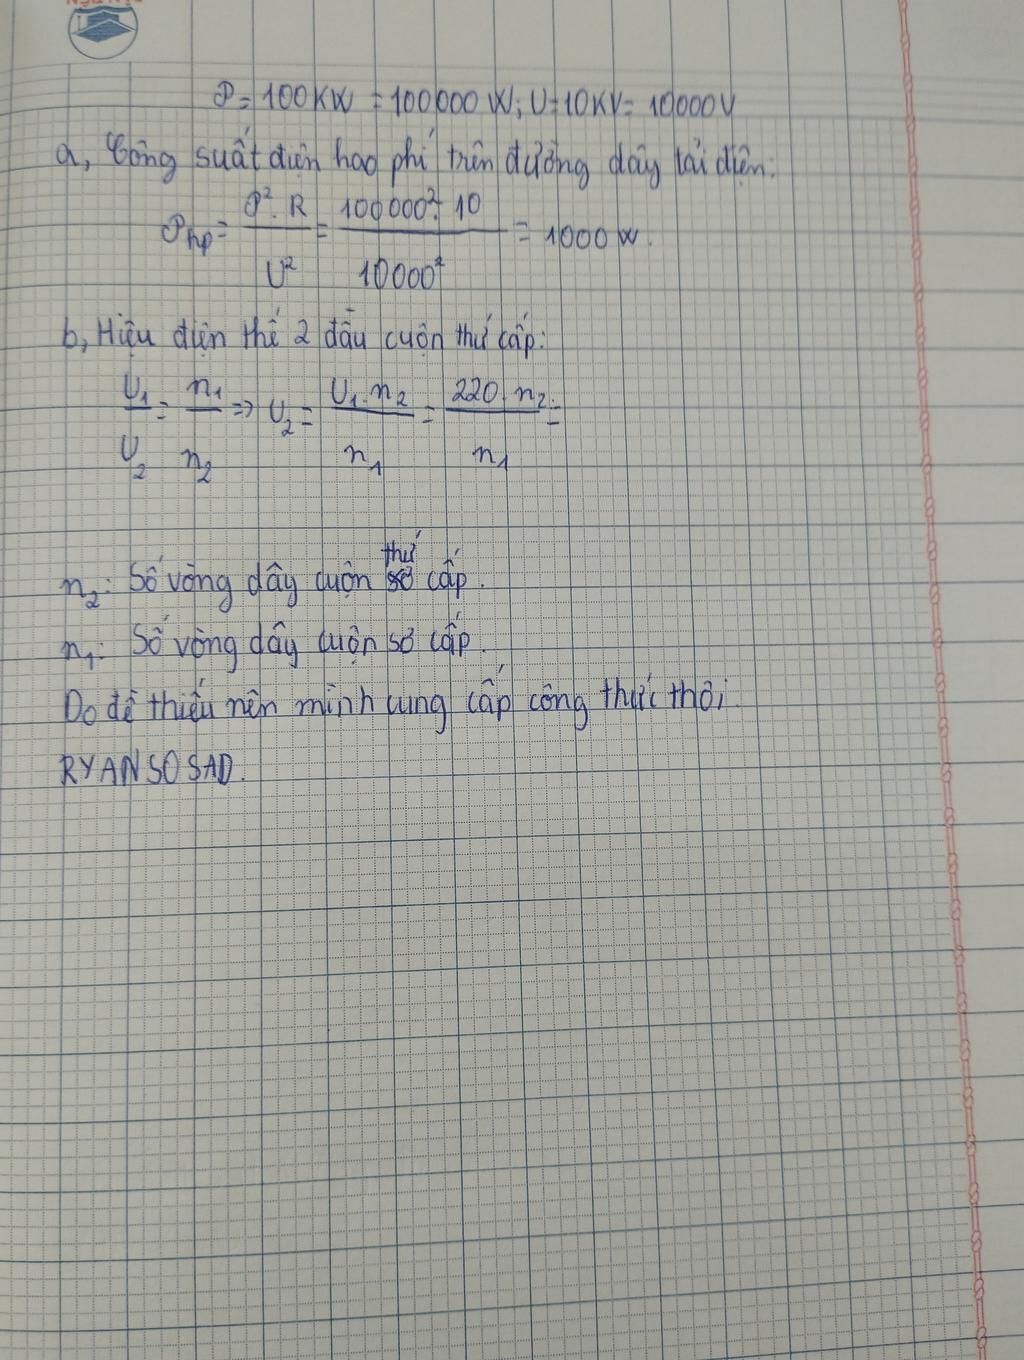 P = 100KW = 100000 W; U=10KV= 10000V
a, Công suất điện hao phí trên đường dây tải điện:
Php = P². R / U² = 100000². 10 / 10000² = 1000 W.
b, Hiệu điện thế 2 đầu cuộn thứ cấp:
U1 / U2 = n1 / n2 => U2 = U1. n2 / n1 = 220. n2 / n1 =
n2: Số vòng dây cuộn thứ cấp.
n1: Số vòng dây cuộn sơ cấp.
Do đề thiếu nên mình cung cấp công thức thôi.
RYANSOSAD.